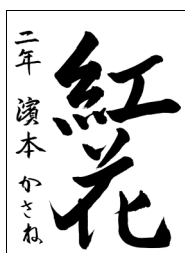 紅花
二年 濱本 かさね